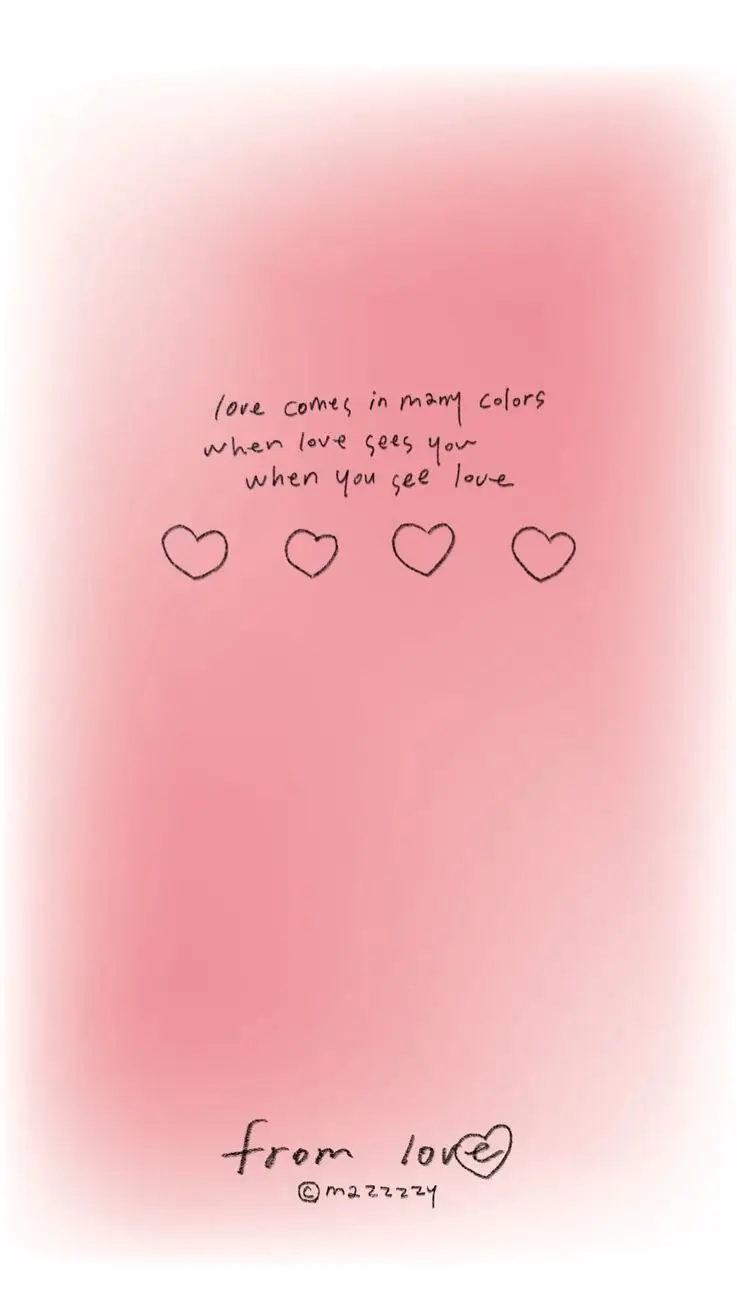 love comes in many colors
when love sees you
when you see love
from love
©mazzzzy